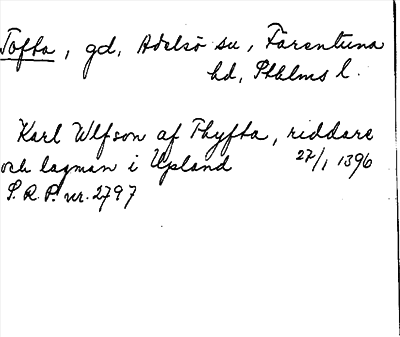 Tofta, gd, Adelsö sn, Färentuna
hd, Sthlms l.
Karl Ulfson af Thyfta, riddare
och lagman i Upland 27/1 1396
S.R.P. nr. 2797